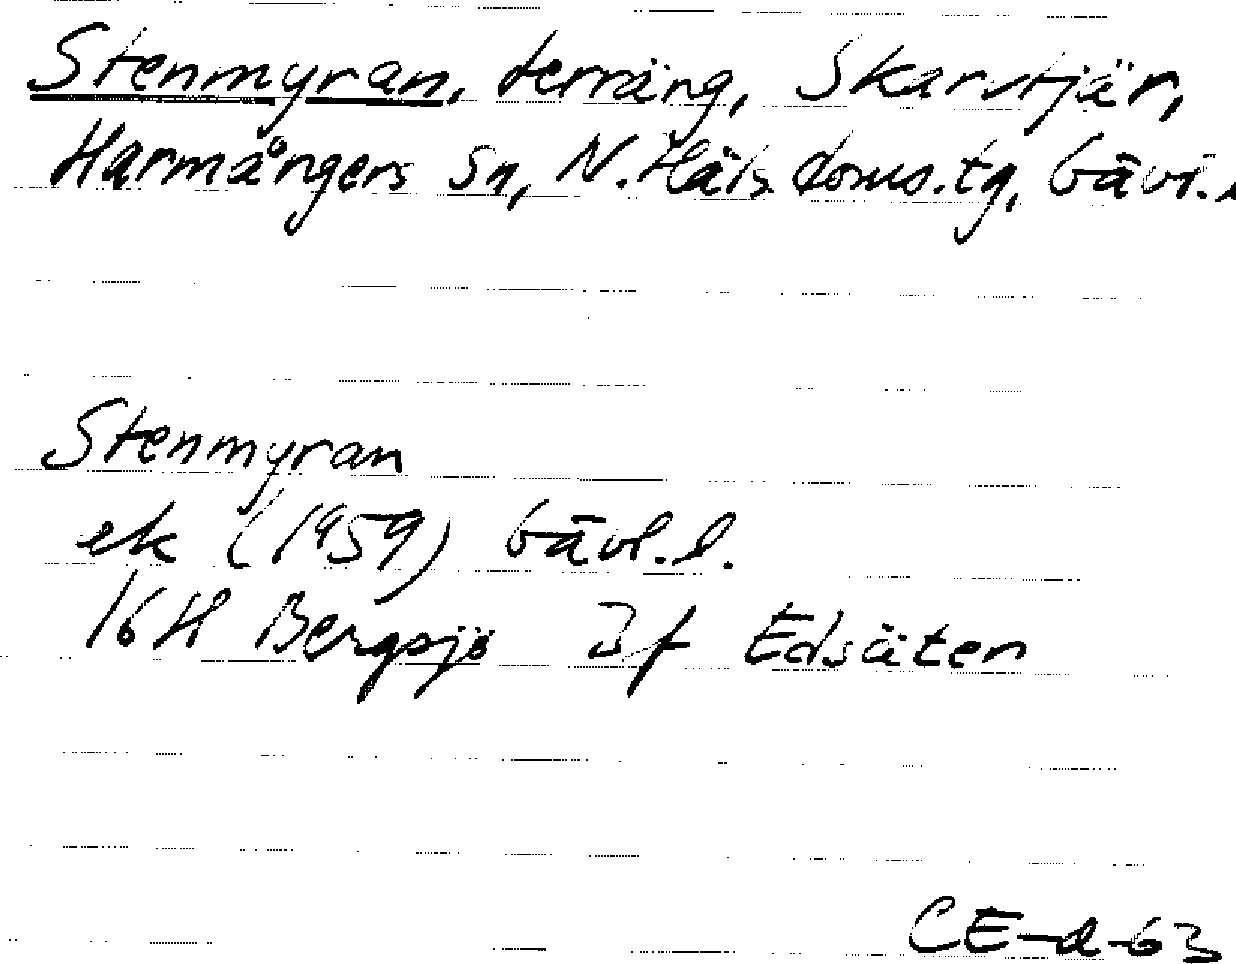 Stenmyran, terräng, Skarvtjär,
Harmångers sn, N. Häls. doms.tg, Gävl.
Stenmyran
ek (1959) Gävl. l.
16H Bergsjö 3f Edsäter
CE-d-63